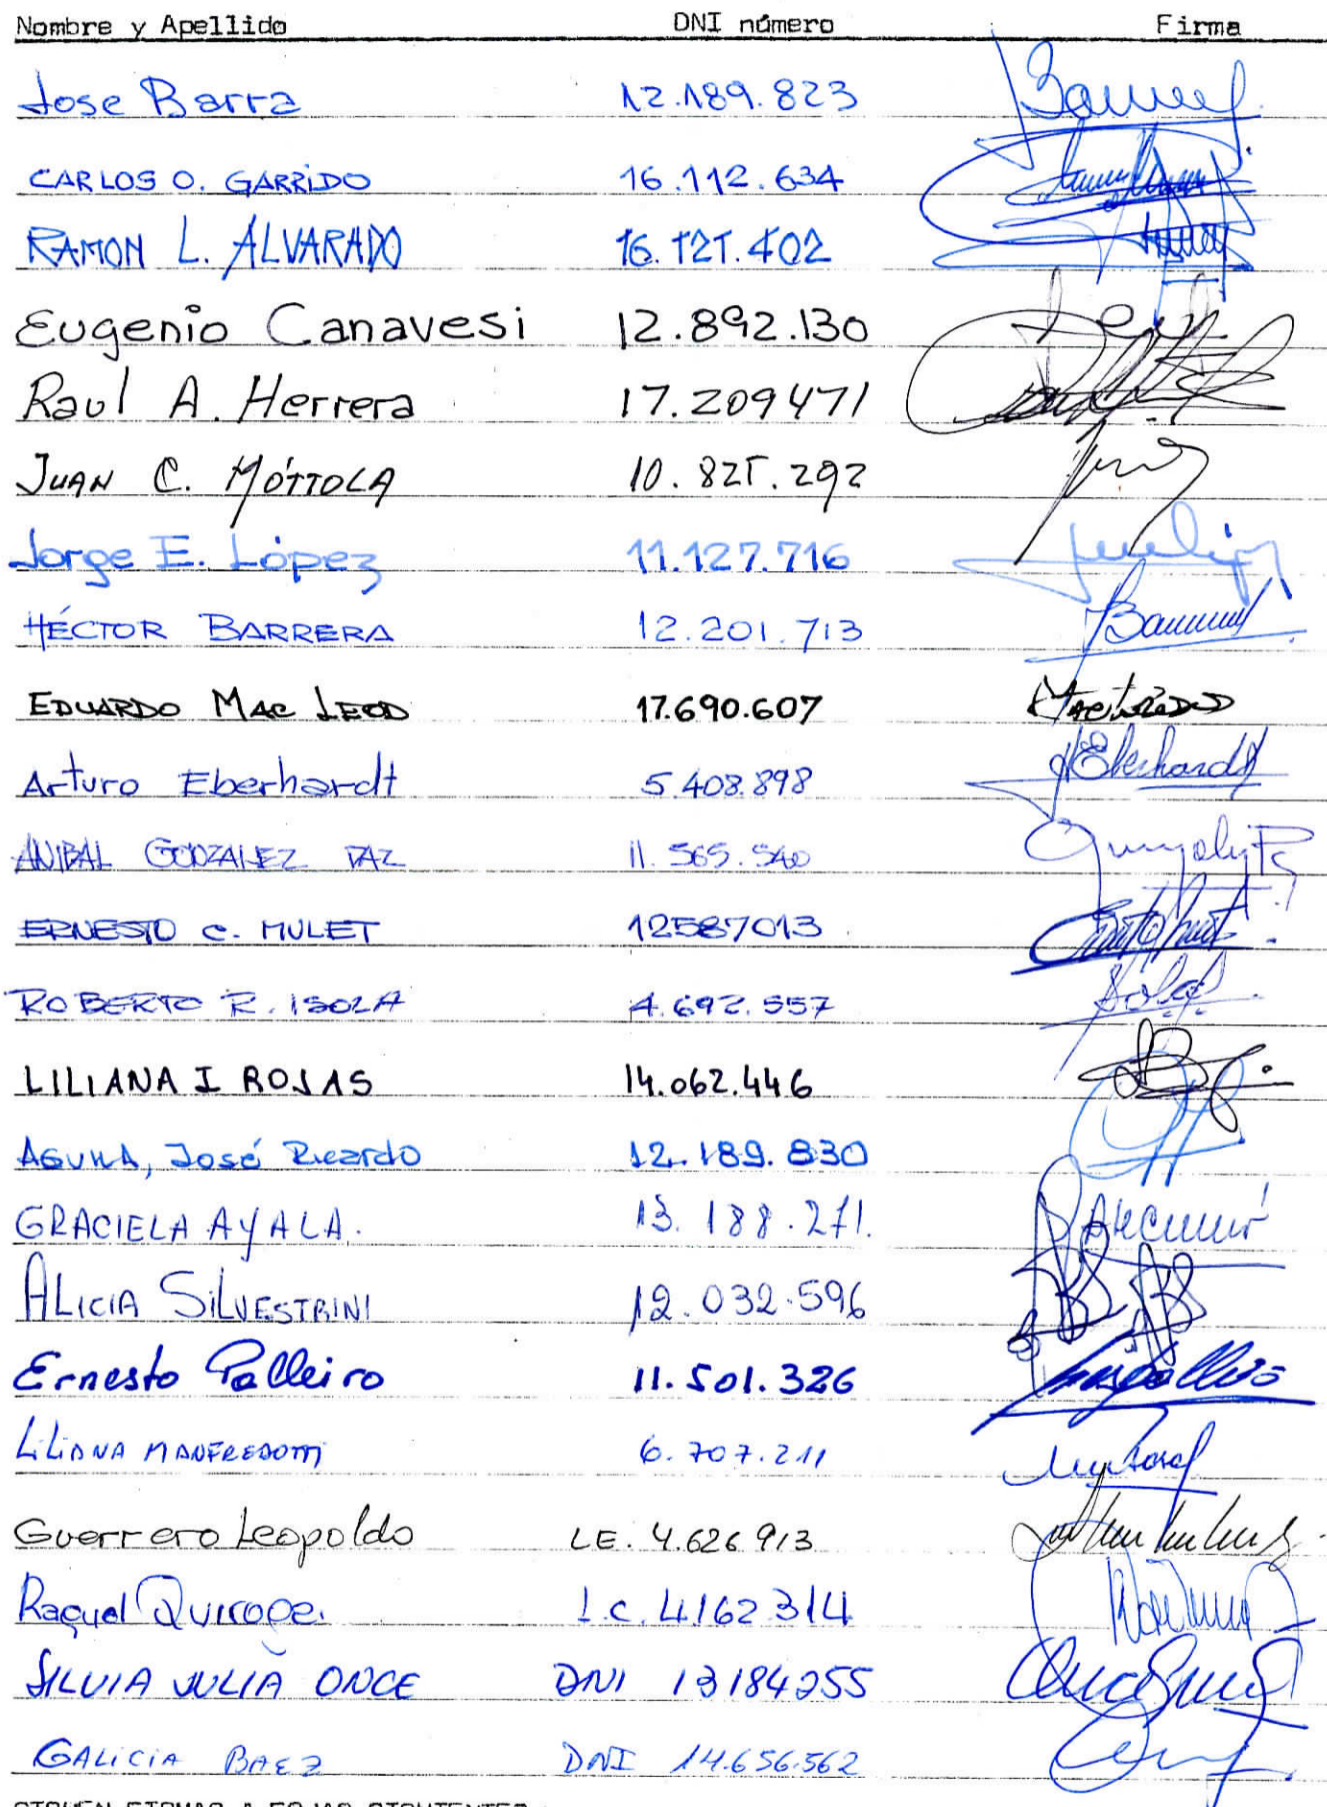 Nombre y Apellido DNI número Firma
Jose Barra 12.189.823
CARLOS O. GARRIDO 16.112.634
RAMON L. ALVARADO 16.121.402
Eugenio Canavesi 12.892.130
Raul A. Herrera 17.209471
JUAN C. MÓTTOLA 10.821.292
Jorge E. López 11.127.716
HÉCTOR BARRERA 12.201.713
EDUARDO MAC LEOD 17.690.607
Arturo Eberhardt 5.408.898 Eberhardt
ANIBAL GONZALEZ PAZ 11.565.540
ERNESTO C. MULET 12587013
ROBERTO R. ISOLA 4.692.557
LILIANA I ROJAS 14.062.446
AGUILA, José Ricardo 12.189.830
GRACIELA AYALA. 13.188.271.
ALICIA SILVESTRINI 12.032.596
Ernesto Palleiro 11.501.326
LILIANA 6.707.211
Guerrero Leopoldo LE. 4.626913
Raquel Quiroga. L.C. 4162314
SILVIA JULIA ONCE DNI 13184255
GALICIA BAEZ DNI 14.656.562